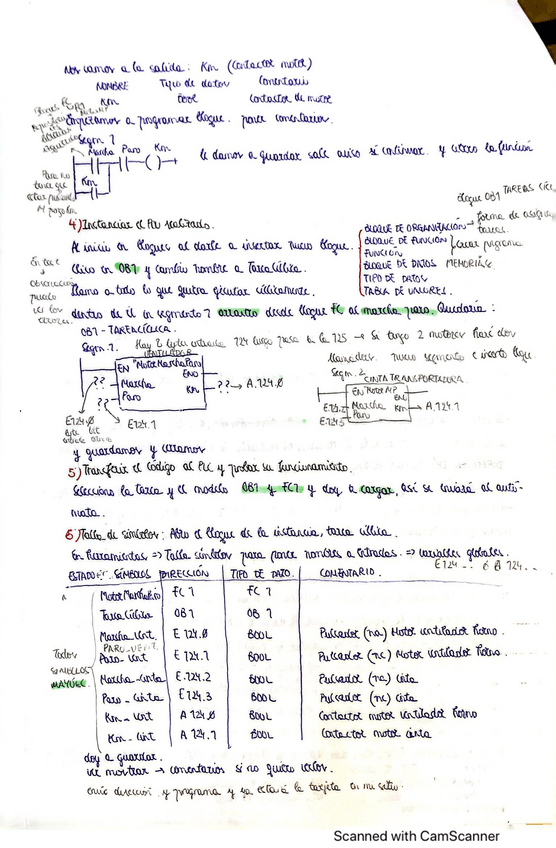 Nos vamos a la salida: Km (Contactor motor)
NOMBRE Tipo de datos Comentario
Km bool Contactor de motor
Empezamos a programar bloque. poner comentarios.
Segm. 1
Marcha Paro Km
Km
le damos a guardar sale aviso sí continuar. y cierro la función
bloque OB1 TAREAS
4) Instanciar el
Al inicio en bloques al darle a insertar nuevo bloque.
BLOQUE DE ORGANIZACIÓN → forma de
tareas.
BLOQUE DE FUNCIÓN
FUNCIÓN
crear programa
BLOQUE DE DATOS MEMORIAS
TIPO DE DATOS
TABLA DE VALORES.
Clico en OB1 y cambio nombre a Tarea Cíclica.
llamo a todo lo que quiera ejecutar cíclicamente.
dentro de él en segmento 1 arrastro desde bloque FC al marcha paro. Quedaría:
OB1 - TAREA CÍCLICA.
Segm. 1. Hay 8 bytes entrada 124 luego pasa a la 125 → Si tengo 2 motores haré dos
llamadas. nuevo segmento e inserto bloque.
VENTILADOR
EN "MotorMarchaParo"
ENO
?? Marcha Km ?? → A.124.0
?? Paro
E124.0 E124.1
byte bit
Segm. 2
CINTA TRANSPORTADORA
EN
ENO
Marcha Km → A.124.1
Paro
y guardamos y cerramos
5) Transferir el código al PLC y probar su funcionamiento.
Selecciono la tarea y el modelo OB1 y FC1 y doy a cargar, así se enviará al autó-
mata.
6) Tabla de símbolos: Abro el bloque de la instancia, tarea cíclica.
En herramientas => Tabla símbolos para poner nombres a entradas. => variables globales.
ESTADO SÍMBOLOS DIRECCIÓN TIPO DE DATO. COMENTARIO.
MotorMarchaParo FC 1 FC 1
TareaCíclica OB 1 OB 1
Marcha_Vent. E 124.0 BOOL Pulsador (na) Motor ventilador horno.
PARO_VENT.
Paro_Vent E 124.1 BOOL Pulsador (nc) Motor ventilador horno.
Marcha_cinta E 124.2 BOOL Pulsador (na) cinta
Paro_cinta E 124.3 BOOL Pulsador (nc) cinta
Km_Vent A 124.0 BOOL Contactor motor ventilador horno
Km_Cint A 124.1 BOOL Contactor motor cinta
Todos
SÍMBOLOS
MAYÚSC.
doy a guardar.
ver mostrar → comentarios si no quiero verlos.
envío dirección y programa y ya estará la tarjeta en mi sitio.
Scanned with CamScanner